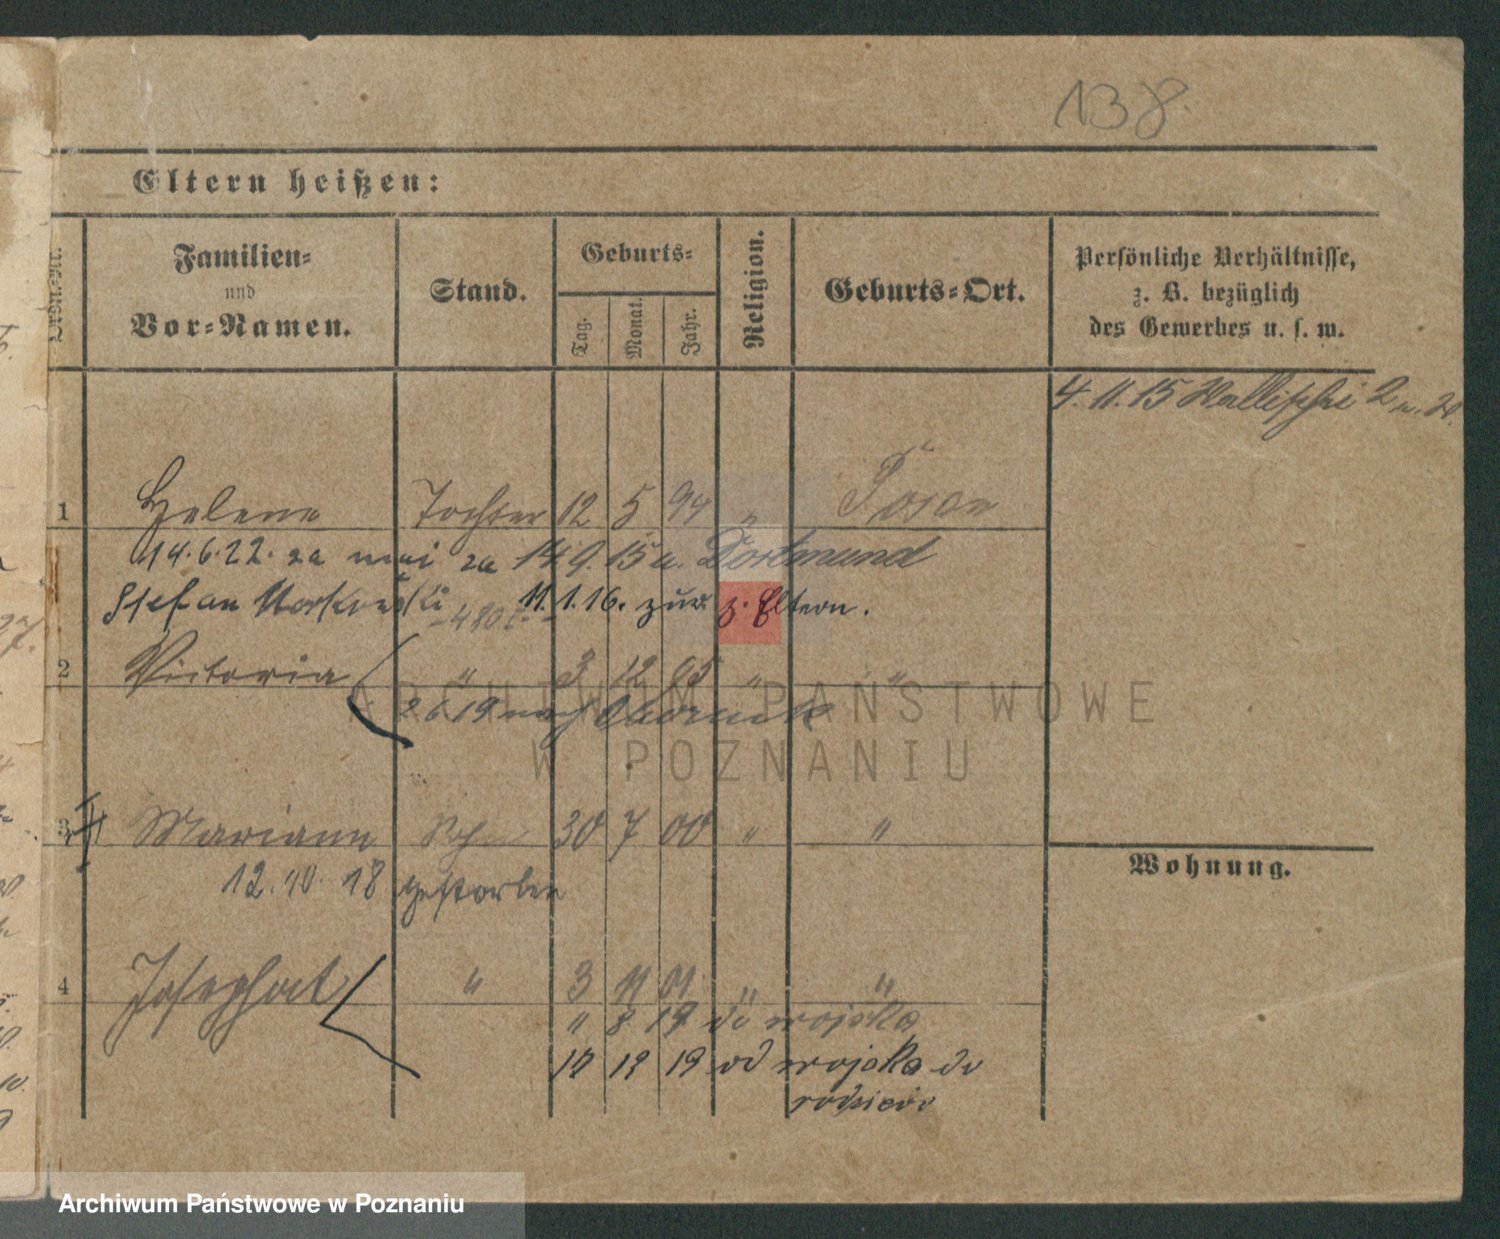 138
Eltern heißen:
Ordn.-Nr.
Familien-
und
Vor-Namen.
Stand.
Geburts-
Tag.
Monat.
Jahr.
Religion.
Geburts-Ort.
Persönliche Verhältnisse,
z. B. bezüglich
des Gewerbes u. s. w.
4. 11. 15 Wallischei 2
1 Helene Tochter 12 5 94 " Posen
14.6.22. za za 14. 9. 15 u. Dortmund
Stefan 11.1.16. zur. z. Eltern.
2 Victoria " 3 12 95 " "
2 6 19 nach Obornik
3 Mariann Sohn 30 7 00 " "
12. 10. 18 gestorben
Wohnung.
4 Josephat " 3 11 01 " "
" 8 19 do wojska
19 od wojska do
rodziców
ARCHIWUM PAŃSTWOWE
W POZNANIU
Archiwum Państwowe w Poznaniu